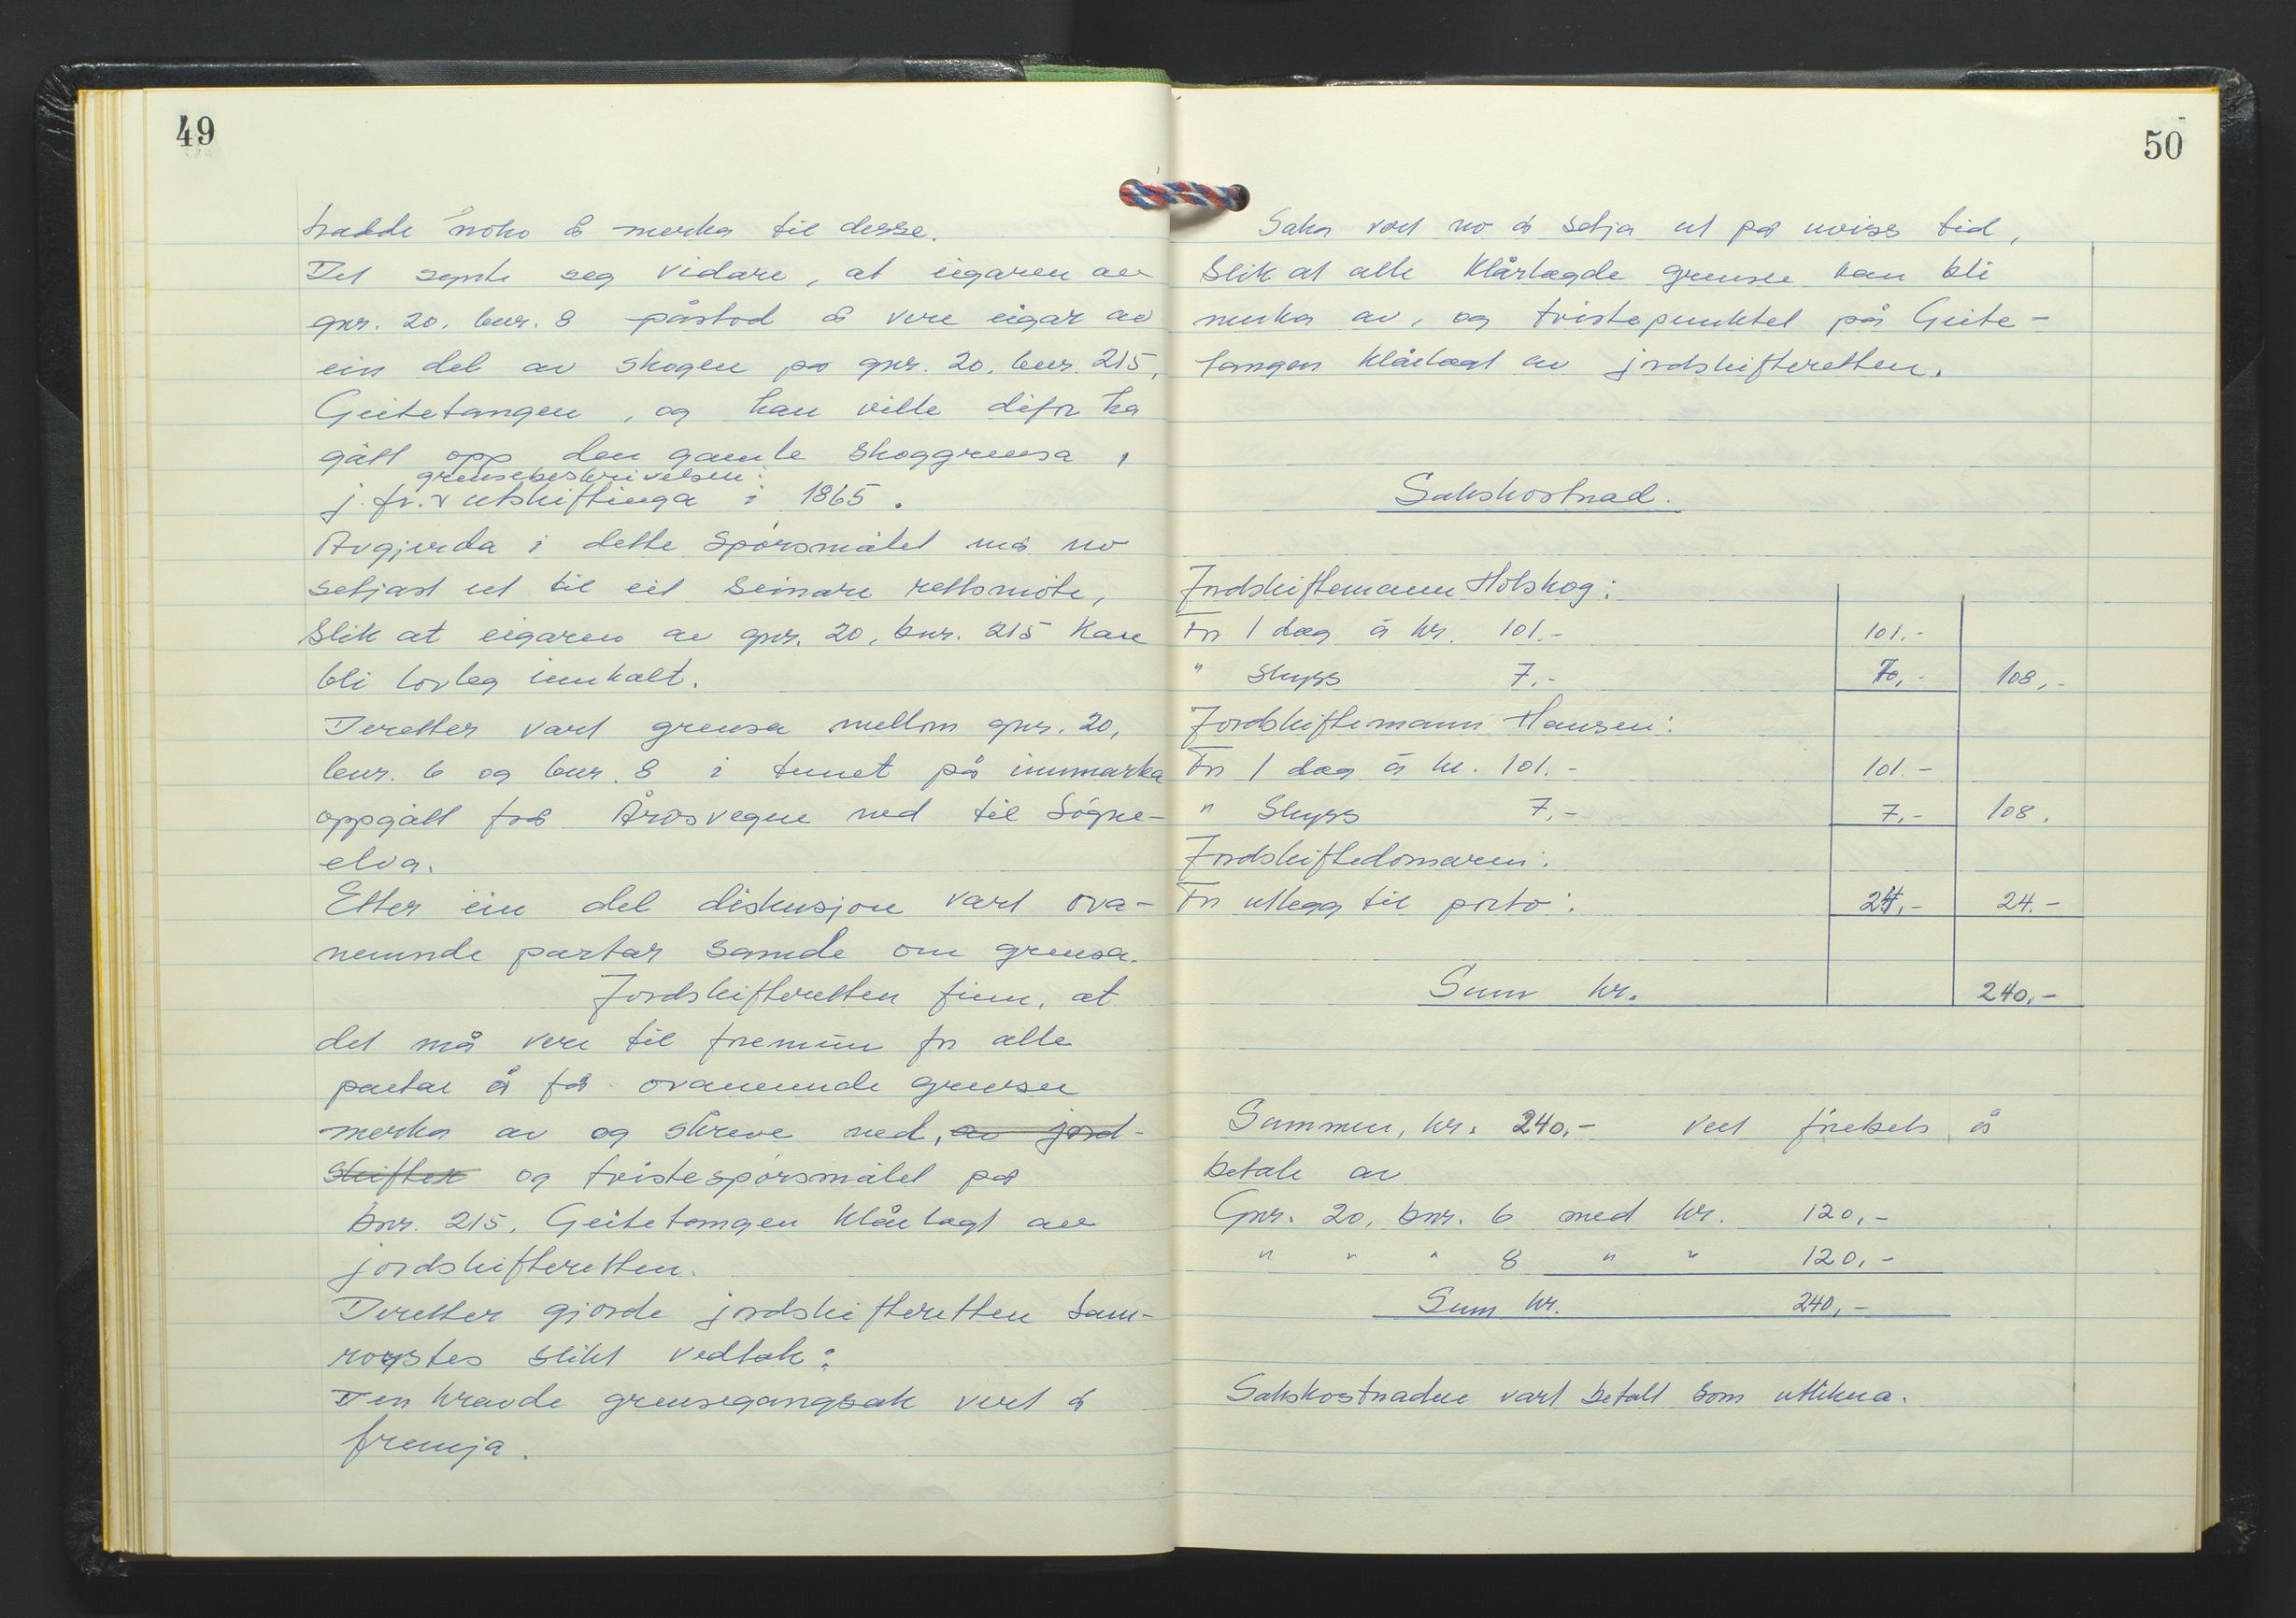 49
hadde noko å merka til desse.
Det synte seg vidare, at eigaren av
gnr. 20, bnr. 8 påstod å vere eigar av
ein del av skogen på gnr. 20, bnr. 215,
Geitetangen, og han ville difor ha
gått opp den gamle skoggrensa,
grensebeskrivelsen:
j.fr. v utskiftinga i 1865.
Avgjerda i dette spørsmålet må no
setjast ut til eit seinare rettsmöte,
slik at eigaren av gnr. 20, bnr. 215 kan
bli lovleg innkalt.
Deretter vart grensa mellom gnr. 20,
bnr. 6 og bnr. 8 i tunet på innmarka
oppgått frå Årosvegen ned til Sögne-
elva.
Etter ein del diskusjon vart ova-
nemnde partar samde om grensa.
Jordskifteretten finn, at
det må vere til fremün for alle
partar å få ovanemnde grenser
merka av og skreve ned, av jord-
skifter og tristespörsmålet på
bnr. 215, Geitetangen klårlagt av
jordskifteretten.
Deretter gjorde jordskifteretten sam-
röystes slikt vedtak:
Den kravde grensegangsak vert å
fremja.
50
Saka vert no å setja ut på uviss tid,
slik at alle klårlagde grenser kan bli
merka av, og tvistepunktet på Geite-
tangen klårlagt av jordskifteretten.
Sakskostnad.
Jordskiftemann Holskog:
For 1 dag à kr. 101.- 101.-
" Skyss 7.- 7,- 108,-
Jordskiftemann Hansen:
For 1 dag à kr. 101.- 101.-
" Skyss 7,- 7,- 108.
Jordskiftedomaren:
For utlegg til porto: 24,- 24.-
Sum kr. 240,-
Summen, kr. 240,- vert førebels å
betale av
Gnr. 20, bnr. 6 med kr. 120,-
" " " 8 " " 120,-
Sum kr. 240,-
Sakskostnaden vart betalt som utlikna.